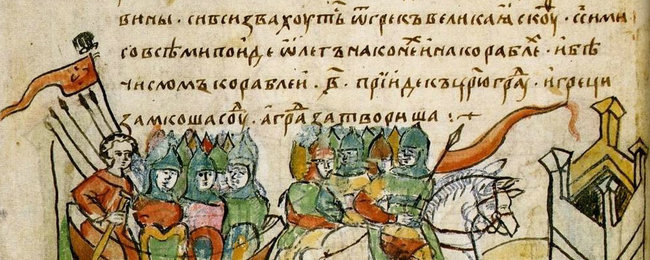 вины · си вси звахоуть ѿ грекъ великаꙗ скоуѳ · с сими
со всѣми поиде ѿлегъ на конехъ и на кораблѣ · и бѣ
числомъ кораблеи · в҃ · прїиде къ цр҃юграⷣу · и греци
замкоша соуⷣ · а граⷣ затвориша ·